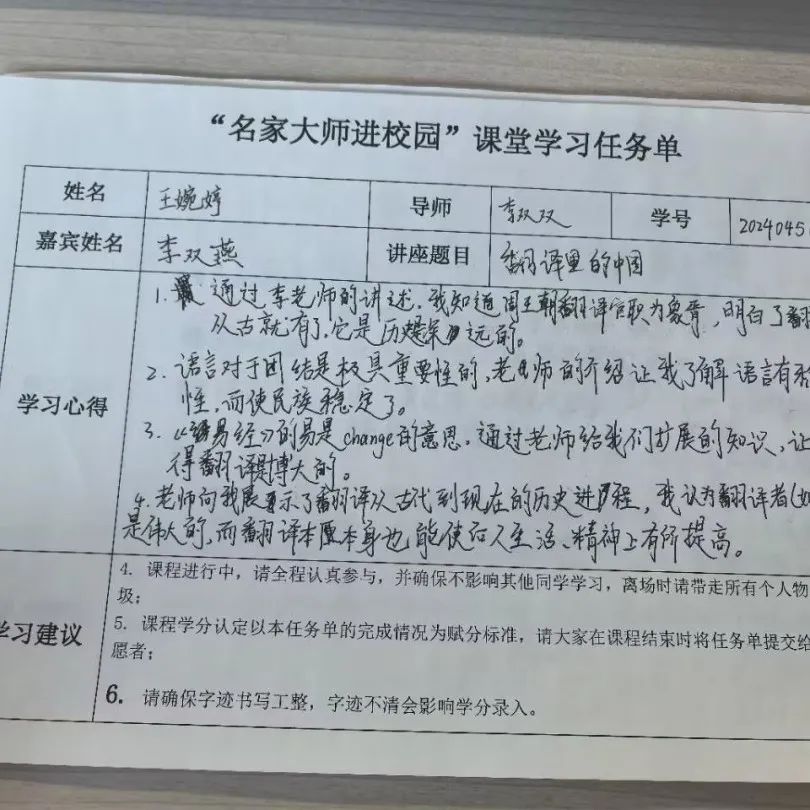 “名家大师进校园”课堂学习任务单
姓名 王婉婷 导师 李双双 学号 2024045
嘉宾姓名 李双燕 讲座题目 翻译里的中国
学习心得
1. 通过李老师的讲述，我知道周王朝翻译官职为象胥，明白了翻
从古就有了，它是历史深远的。
2. 语言对于团结是极具重要性的，老师的介绍让我了解语言有
性，而使民族稳定了。
3. 《易经》的易是change的意思，通过老师给我们扩展的知识，让
得翻译是博大的。
4. 老师向我展示了翻译从古代到现在的历史进程，我认为翻译者(如
是伟大的，而翻译本身也能使后人生活、精神上有所提高。
学习建议
4. 课程进行中，请全程认真参与，并确保不影响其他同学学习，离场时请带走所有个人物
圾；
5. 课程学分认定以本任务单的完成情况为赋分标准，请大家在课程结束时将任务单提交给
愿者；
6. 请确保字迹书写工整，字迹不清会影响学分录入。